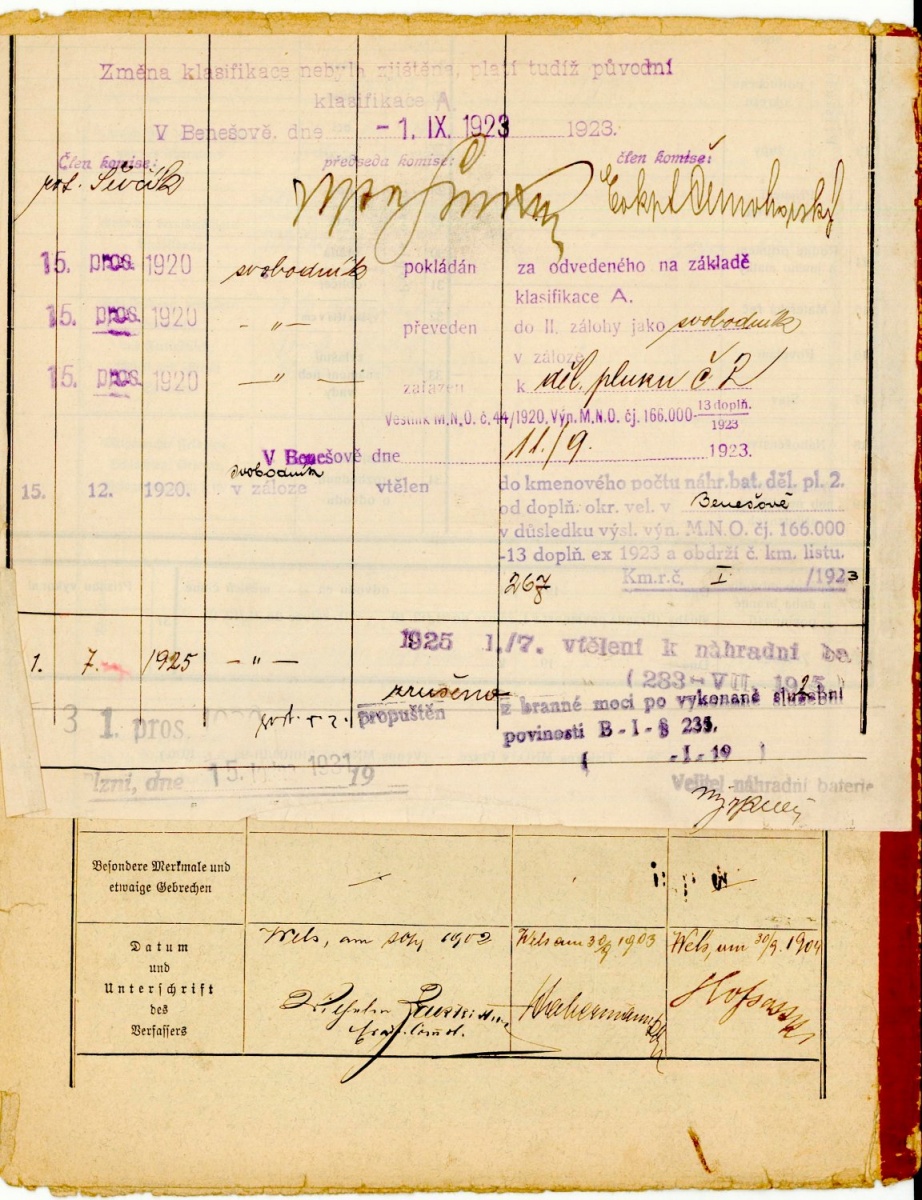 Změna klasifikace nebyla zjištěna, platí tudíž původní
klasifikace A.
V Benešově. dne - 1. IX. 1923 1923.
Člen komise: předseda komise: člen komise:
15. pros. 1920 svobodník pokládán za odvedeného na základě
klasifikace A.
15. pros. 1920 - " - převeden do II. zálohy jako svobodník
v záloze
15. pros. 1920 - " - zařazen k děl. pluku č 2
Věstník M.N.O. č. 44/1920, Výn. M.N.O. čj. 166.000-13 doplň./1923
V Benešově dne 11./9. 1923.
svobodník
15. 12. 1920. v záloze vtělen do kmenového počtu náhr. bat. děl. pl. 2.
od doplň. okr. vel. v Benešově
v důsledku výsl. výn. M.N.O. čj. 166.000
-13 doplň. ex 1923 a obdrží č. km. listu.
267 Km.r.č. I /1923
1925 1./7. vtělení k náhradní ba
1. 7. 1925 - " - (283-VII. 1925)
zrušeno
propuštěn z branné moci po vykonané služební
31. pros. povinosti B - I - § 235.
( -I-19 )
Plzni, dne 15. 1931 19
Velitel náhradní baterie
Besondere Merkmale und
etwaige Gebrechen
Datum
und
Unterschrift
des
Verfassers
Wels, am 1902
Wels am 30/9 1903
Wels, am 30/9. 1904
Wilhelm